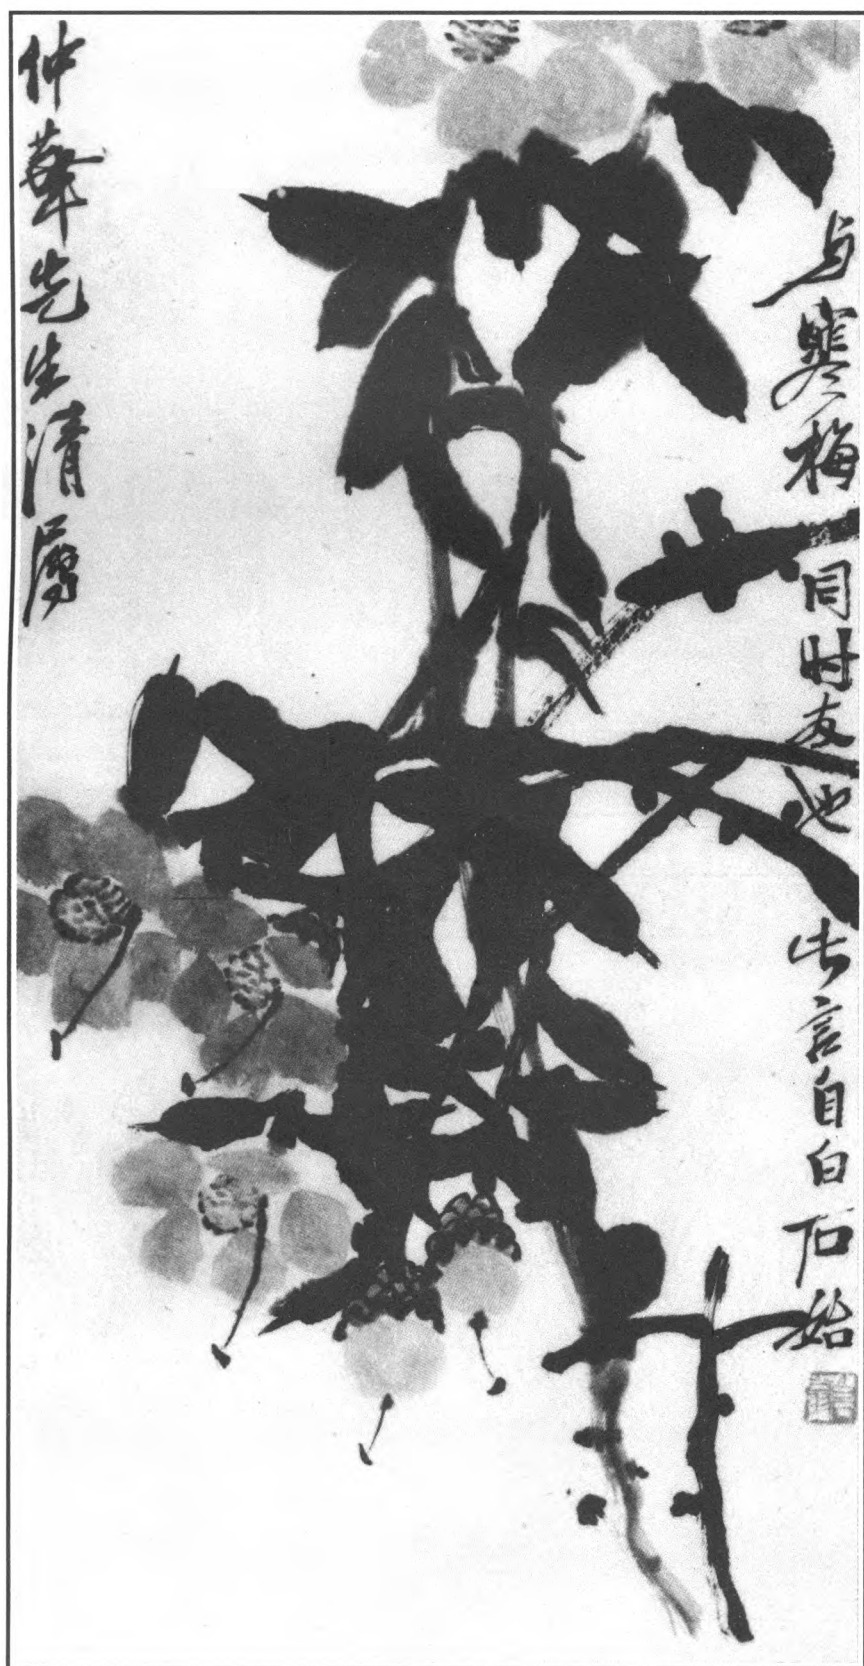 与寒梅同时友也
此言自白石始
仲華先生清屬